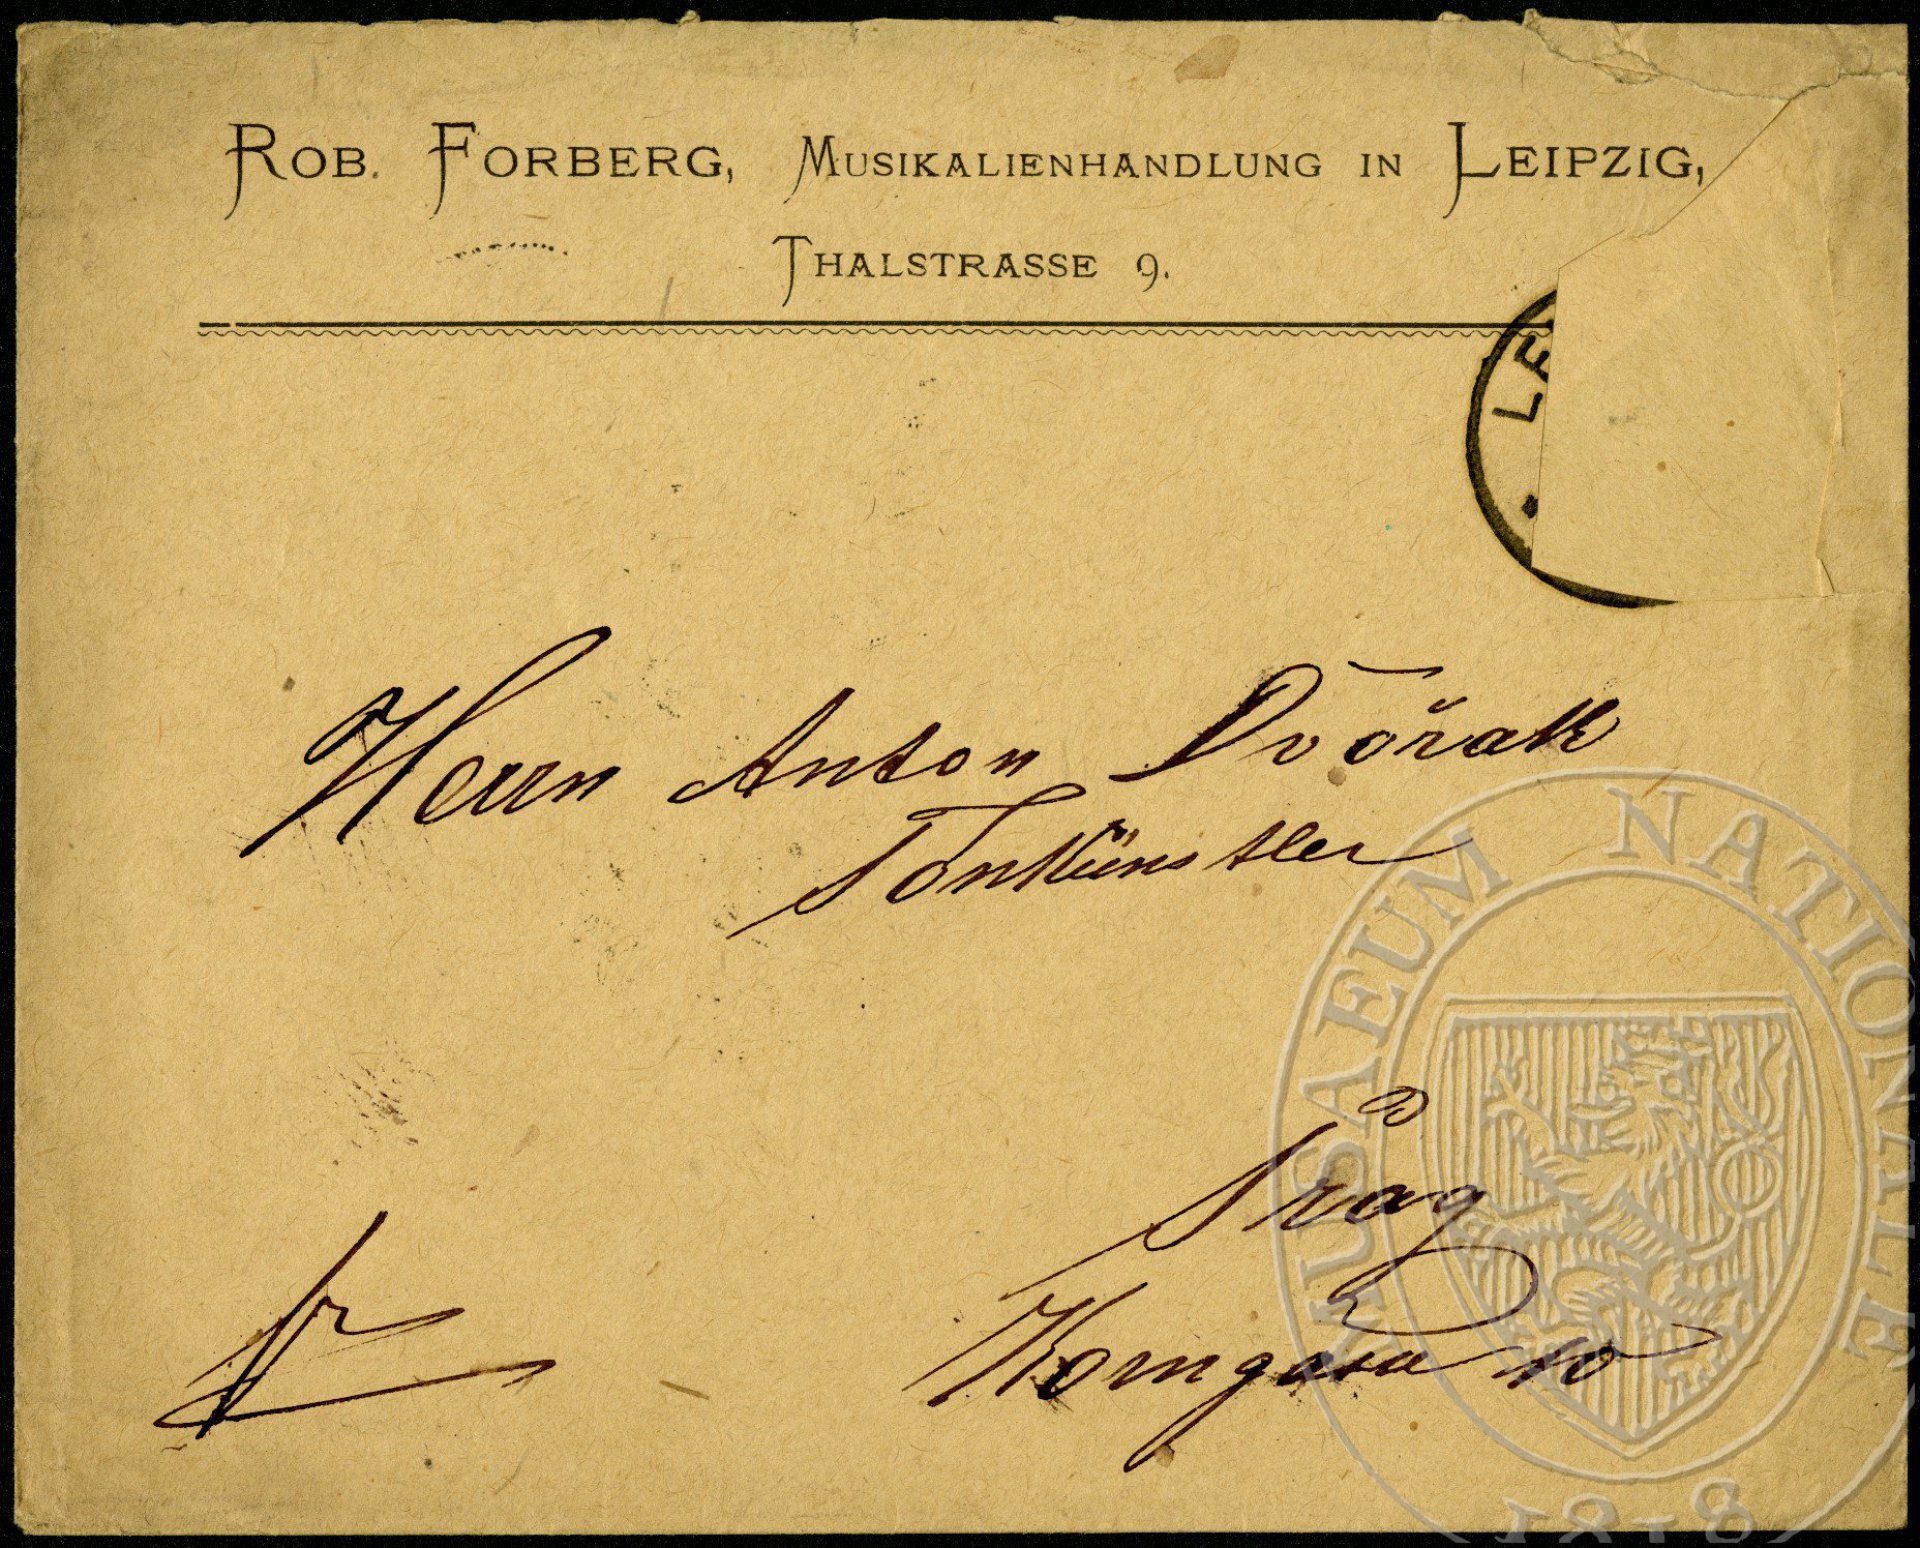 ROB. FORBERG, MUSIKALIENHANDLUNG IN LEIPZIG,
THALSTRASSE 9.
LE
Herrn Anton Dvořak
Tonkünstler
Prag
Korngasse 10
fr
MUSAEUM NATIONALE
1818